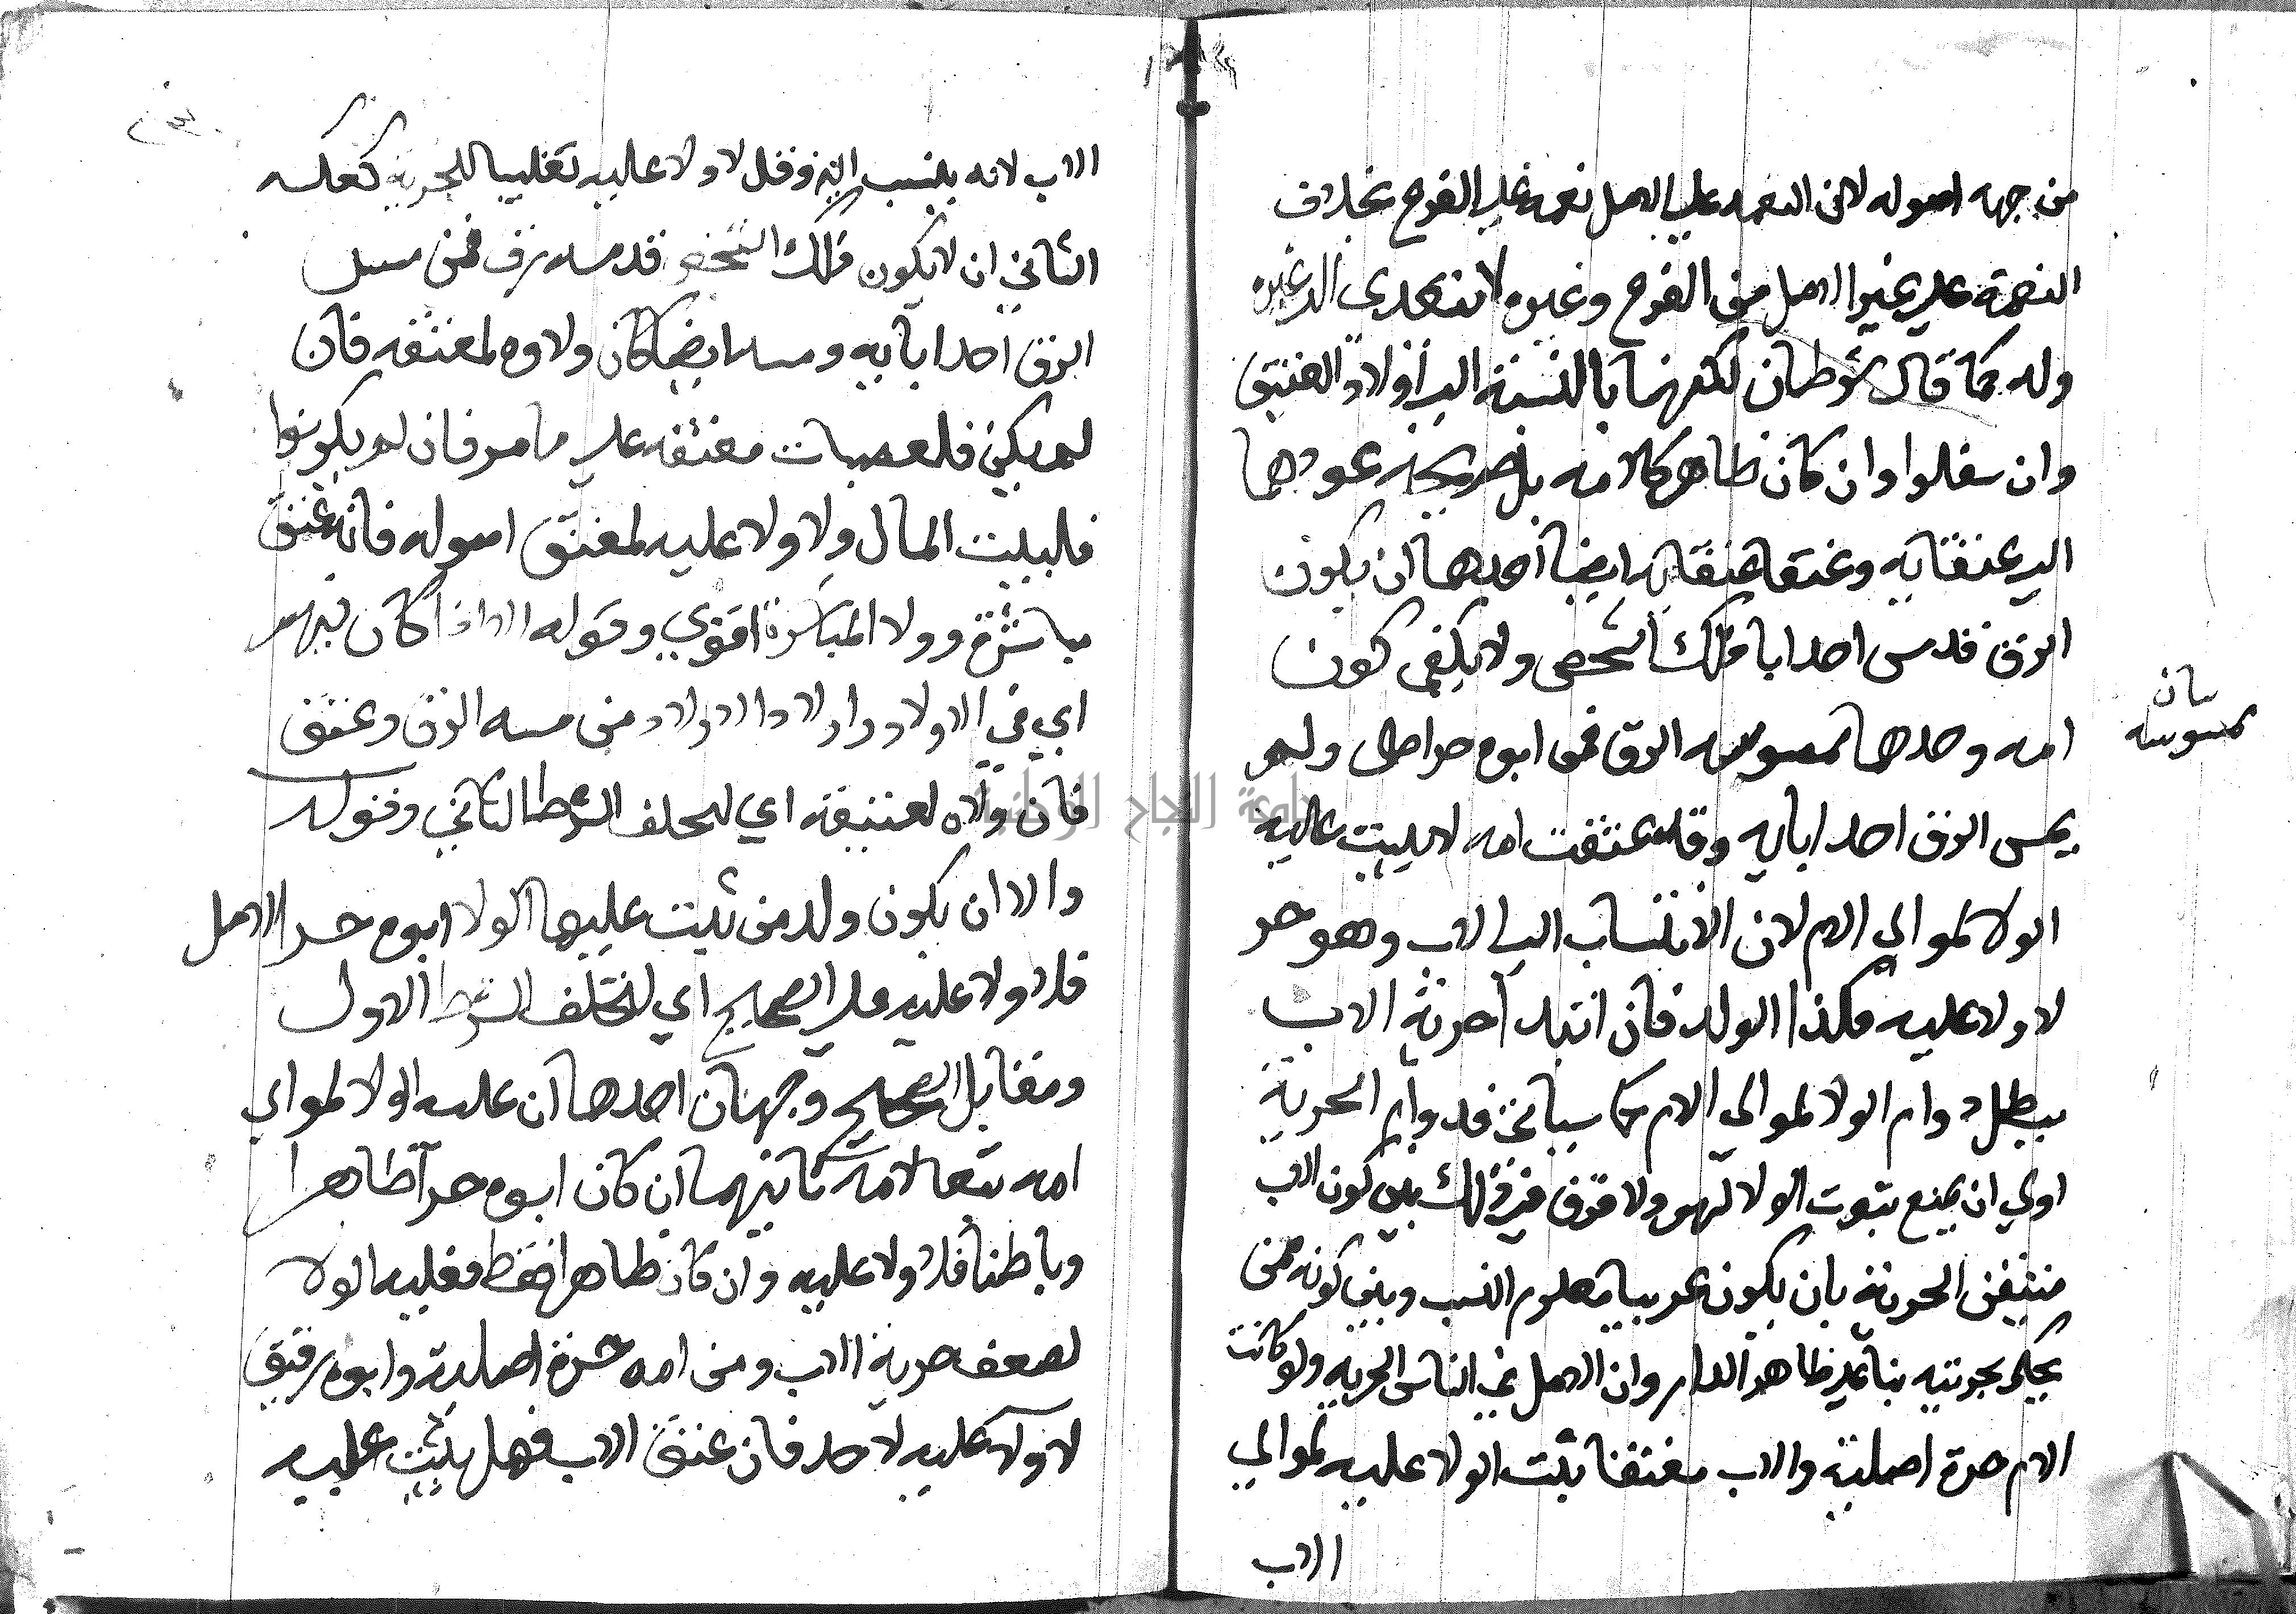 من جهه اصوله لان النعمه على الاصل نعمه على الفرع بخلاف
النعمة على غير الاصل من الفرع وغيره لا تتعدي الى غيره
وله كما قال شرطان لكنهما بالنسبة الى اولاد العتيق
وان سفلوا وان كان ظاهر كلامه بل صريحه عودهما
الى عتقايه وعتقا عتقايه ايضا احدهما ان يكون
الرق قد مس احد ابا ذلك الشخص ولا يكفي كون
امه وحدها ممسوسه الرق فمن ابوه حر اصلي ولم
يمس الرق احد ابايه وقد عتقت امه لا يثبت عليه
الولا لموالي الام لان الانتساب الى الاب وهو حر
لا ولا عليه فكذا الولد فان ابتدا حرية الاب
يبطل دوام الولا لموالي الام كما سياتي فدوام الحرية
اولي ان يمنع ثبوت الولا لهم ولا فرق في ذلك بين كون الاب
متيقن الحرية بان يكون عربيا معلوم النسب وبين كونه ممن
يحكم بحريته بنا على ظاهر الدار وان الاصل في الناس الحريه ولو كانت
الام حرة اصلية والاب معتقا ثبت الولا عليه لموالي
الاب
بيان
ممسوسه
الاب لانه ينسب اليه وقيل لا ولا عليه تغليبا للحرية كعكسه
الثاني ان لا يكون ذلك الشخص قد مسه رق فمن مس
الرق احد ابايه ومسه ايضا كان ولاوه لمعتقه فان
لم يكن فلعصبات معتقه على ما مر فان لم يكونوا
فلبيت المال ولا ولا عليه لمعتق اصوله فانه عتق
مباشرة وولا المباشرة اقوي وقوله الا اذا كان فيهم
اي في الاولاد واولاد الاولاد من مسه الرق وعتق
فان ولاه لعتيقه اي لتخلف الشرط الثاني وقوله
والا ان يكون ولد من ثبت عليها الولا ابوه حر الاصل
فلا ولا عليه على الصحيح اي لتخلف الشرط الاول
ومقابل الصحيح وجهان احدهما ان عليه الولا لموالي
امه تبعا لامه ثانيهما ان كان ابوه حرا ظاهرا
وباطنا فلا ولا عليه وان كان ظاهرا فقط فعليه الولا
لضعف حرية الاب ومن امه حرة اصلية وابوه رقيق
لا ولا عليه لاحد فان عتق الاب فهل يثبت عليه
جامعة النجاح الوطنية